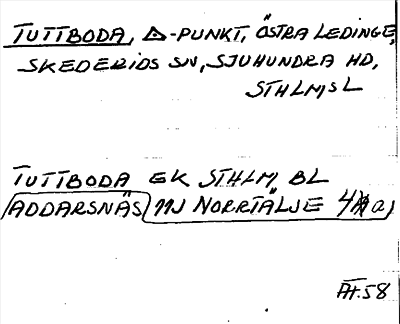 TUTTBODA, △-PUNKT, ÖSTRA LEDINGE,
SKEDERIDS SN, SJUHUNDRA HD,
STHLMS L
TUTTBODA EK STHLM, BL
ADDARSNÄS 11J NORRTÄLJE 4 a,
58